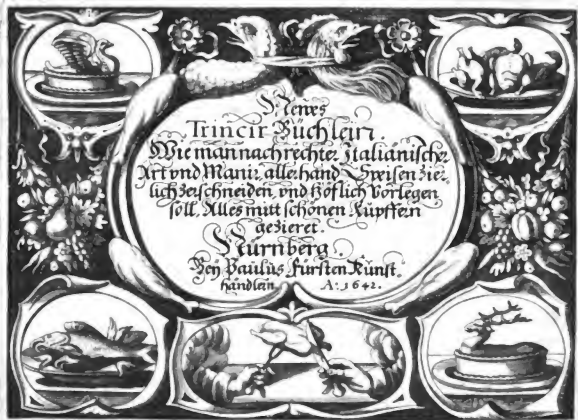 Newes
Trincir Büchlein.
Wie man nach rechter Italiänischer
Art vnd Manir, allerhand Speisen zier-
lich zerschneiden, vnd höflich vorlegen
soll. Alles mitt schönen Kupffern
gezieret.
Nürnberg.
Bey Paulus Fürsten Kunst-
händlern A: 1642.